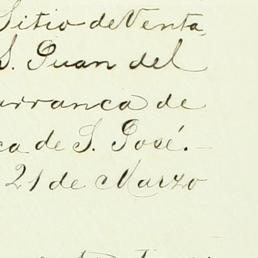 Sitio de Venta,
S. Juan del
arranca de
ca de S. José.—
21 de Marzo